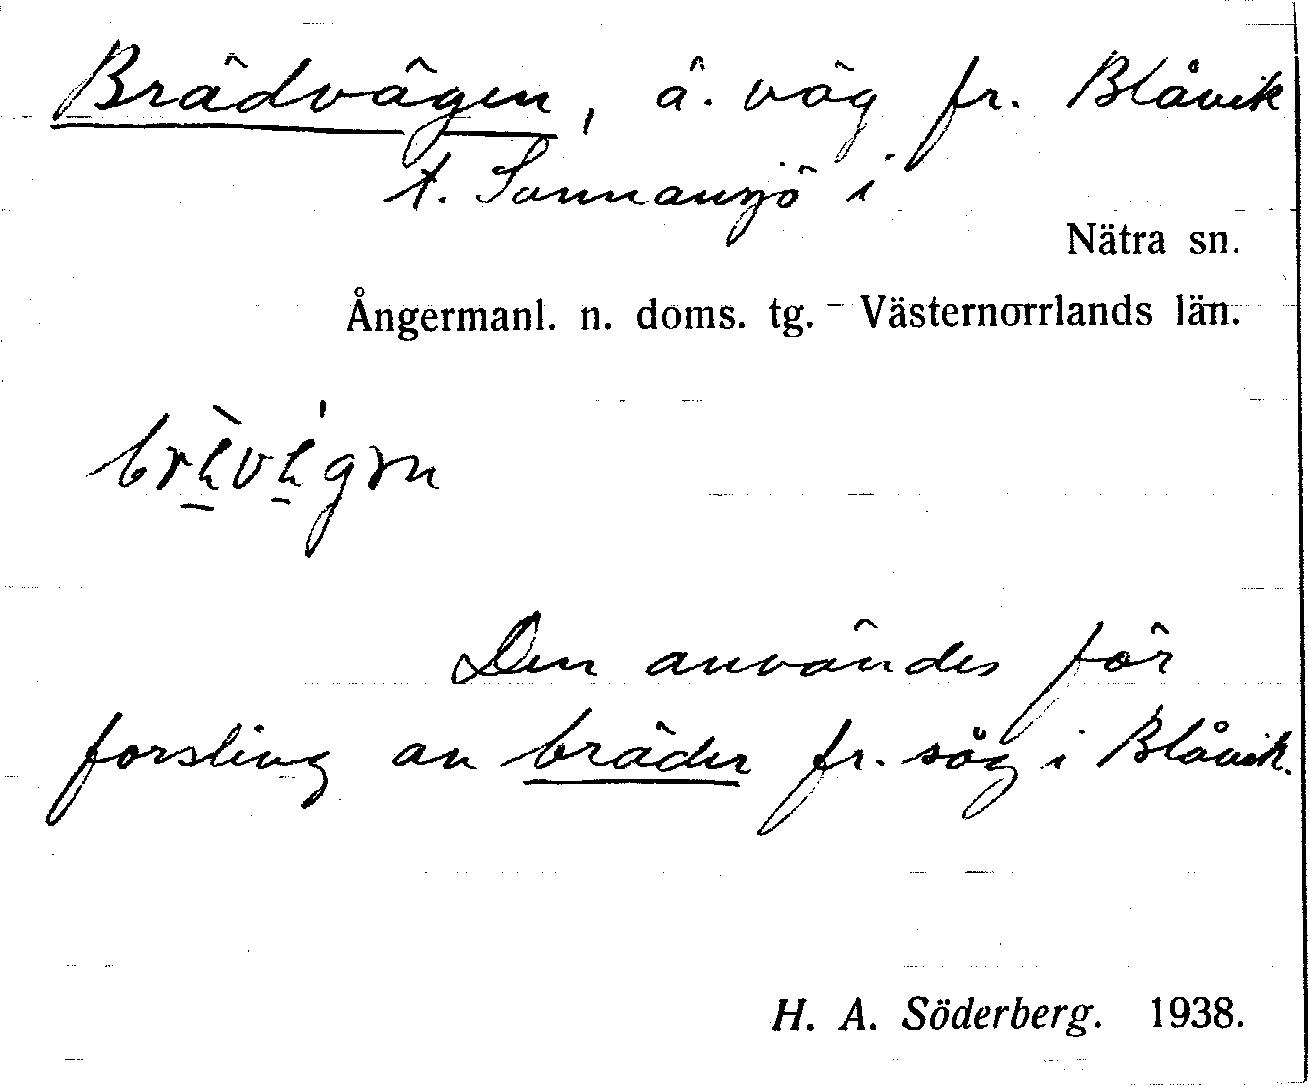 Brädvägen, ä. väg fr. Blåvik
t. Sunnansjö i
Nätra sn.
Ångermanl. n. doms. tg. – Västernorrlands län.
Den användes för
forsling av bräder fr. såg i Blåvik.
H. A. Söderberg. 1938.